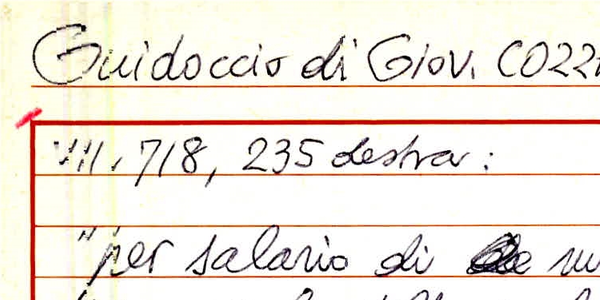 Guidoccio di Giov. COZZ
VII. 718, 235 destra:
"per salario di